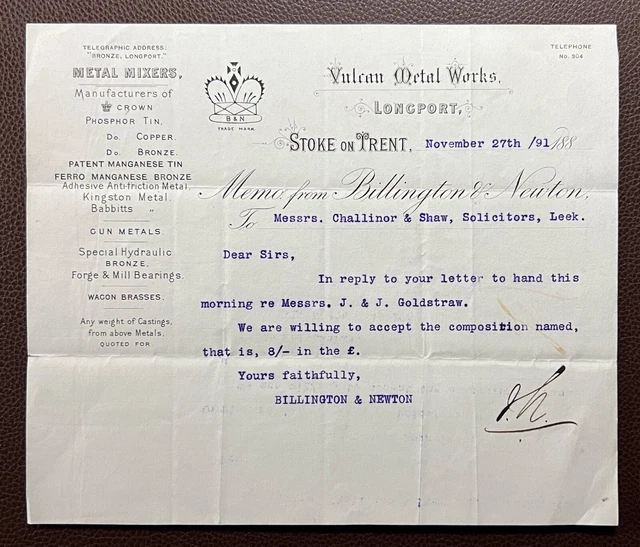 TELEGRAPHIC ADDRESS:
"BRONZE, LONGPORT."
METAL MIXERS,
Manufacturers of
CROWN
PHOSPHOR TIN,
Do. COPPER.
Do. BRONZE.
PATENT MANGANESE TIN
FERRO MANGANESE BRONZE
Adhesive Anti-friction Metal,
Kingston Metal.
Babbitts "
GUN METALS.
Special Hydraulic
BRONZE,
Forge & Mill Bearings.
WAGON BRASSES.
Any weight of Castings,
from above Metals,
QUOTED FOR
B & N
TRADE MARK.
TELEPHONE
No. 504
Vulcan Metal Works,
LONGPORT,
STOKE ON TRENT, November 27th /91 188
Memo. from Billington & Newton,
To Messrs. Challinor & Shaw, Solicitors, Leek.
Dear Sirs,
In reply to your letter to hand this
morning re Messrs. J. & J. Goldstraw.
We are willing to accept the composition named,
that is, 8/- in the £.
Yours faithfully,
BILLINGTON & NEWTON